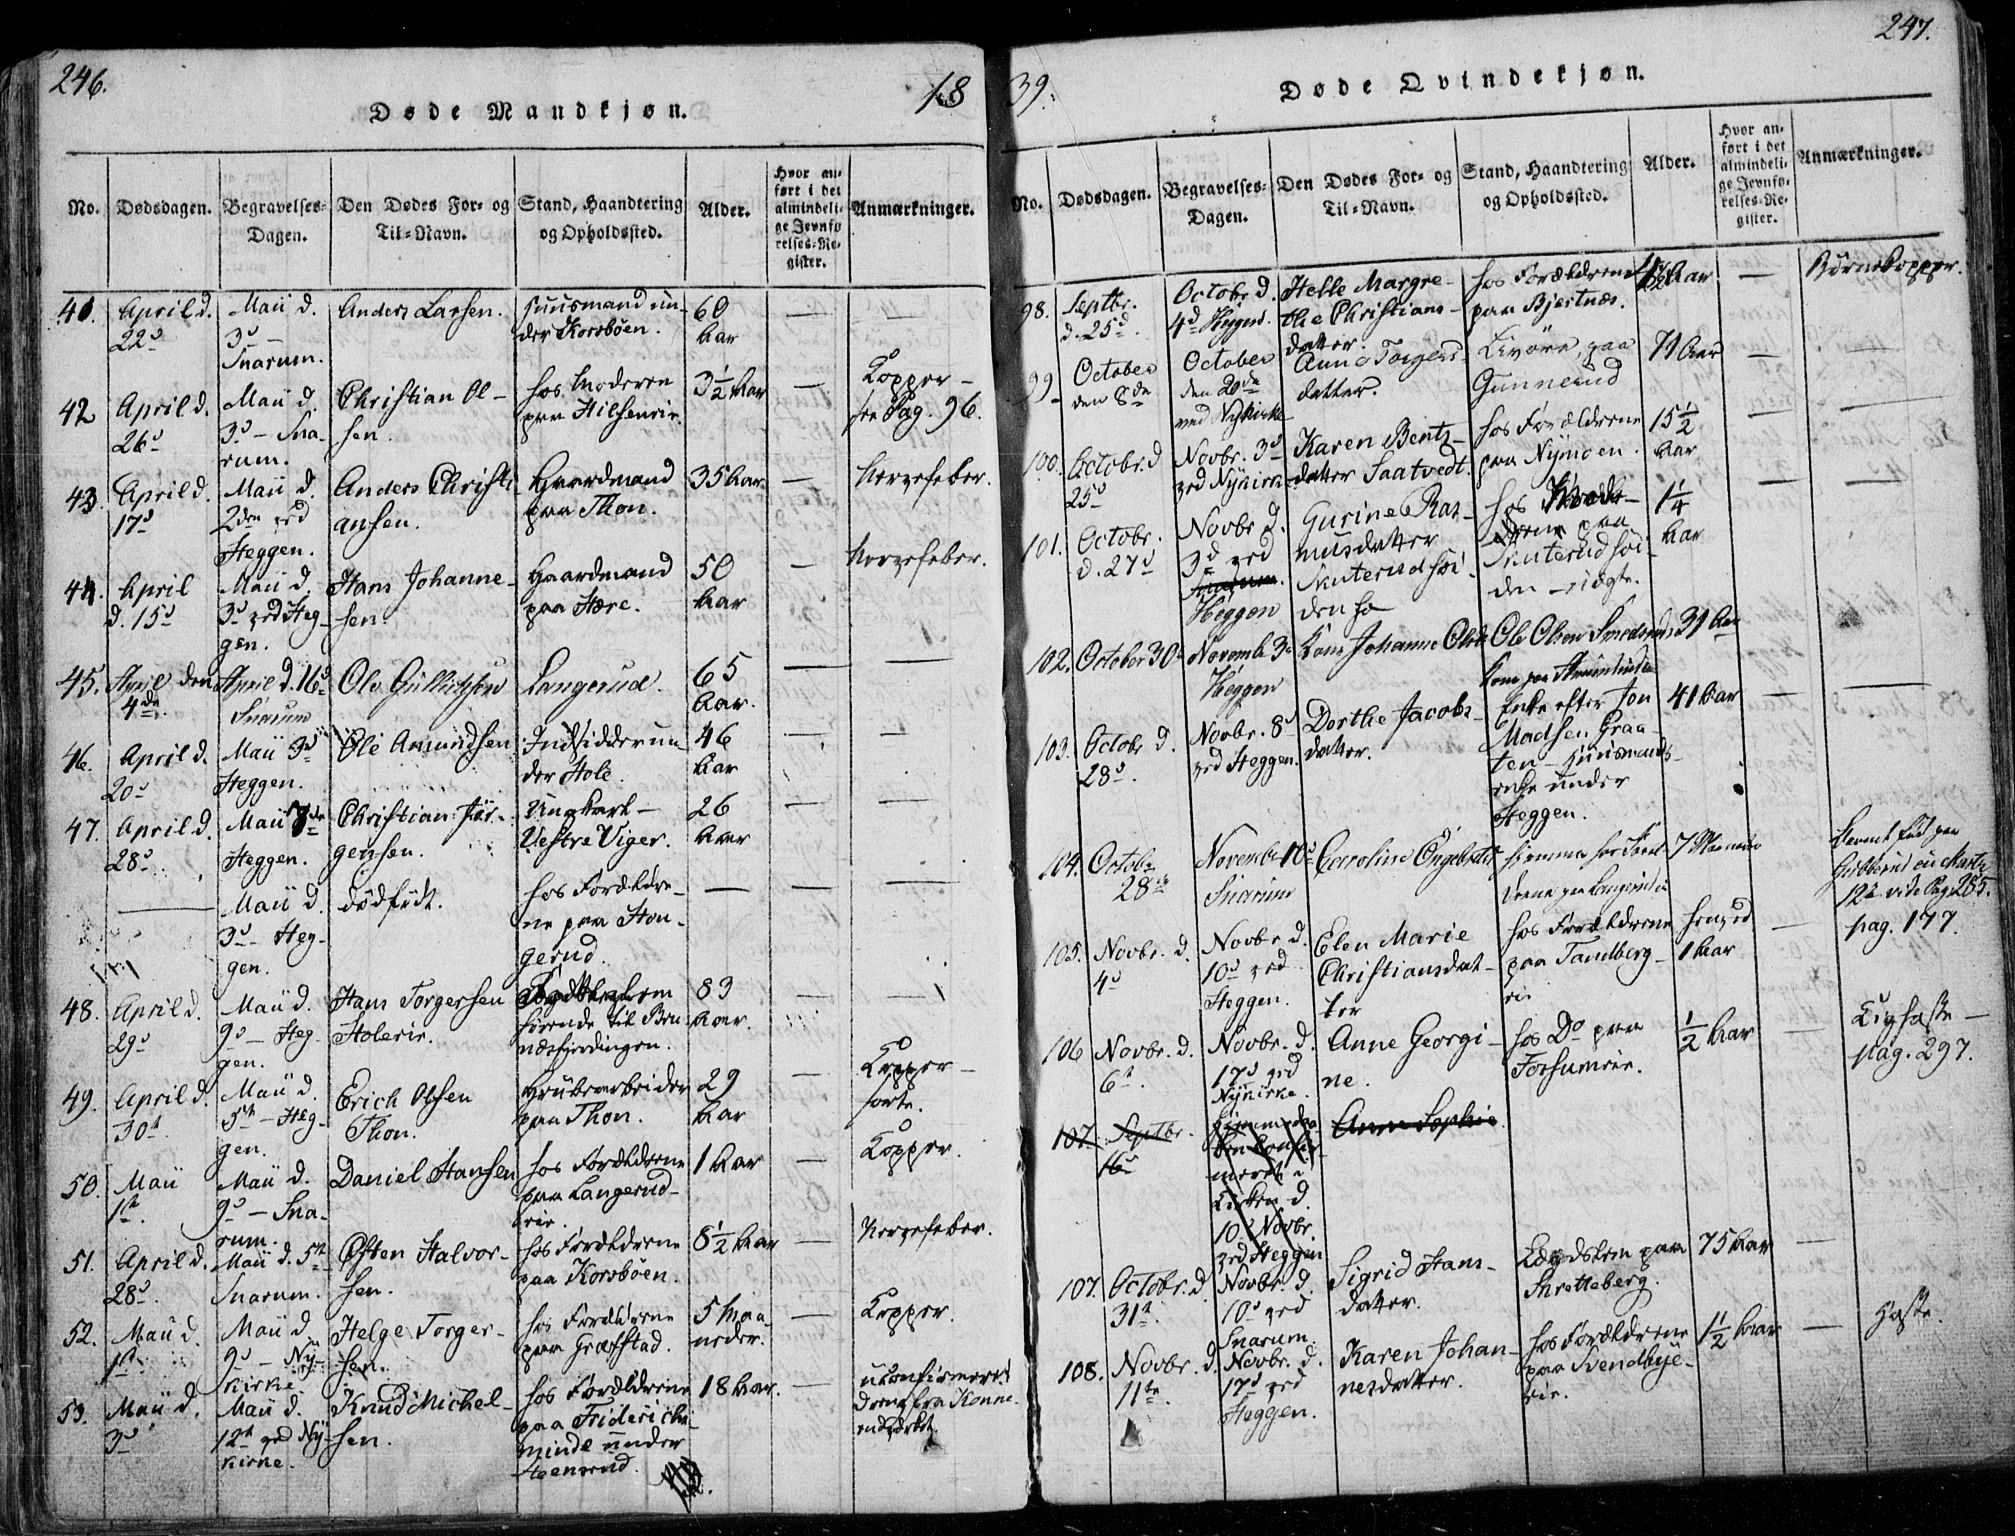 246.
Døde Mandkjøn.
18
No.
Dødsdagen.
Begravelses-
Dagen.
Den Dødes For- og
Til-Navn.
Stand, Haandtering
og Opholdssted.
Alder.
Hvor an-
ført i det
almindeli-
ge Jevnfø-
relses-Re-
gister.
Anmærkninger.
41.
April d.
22d
Maii d.
3d
Snarum.
Anders Larsen.
Huusmand un-
der Korsbøen.
60
Aar
42
April d.
26d
Maii d.
3d – Sna-
rum.
Christian Ol-
sen.
hos Moderen
paa
3½ Aar
Kopper –
see Pag. 96.
43.
April d.
17d
Maii d.
2den ved
Heggen.
Anders Christi-
ansen.
Gaardmand
paa Thon.
35 Aar.
Nervefeber.
44.
April
d. 15d
Maii d.
3d ved Heg-
gen.
Hans Johanne-
sen.
Gaardmand
paa Hære.
50
Aar
Nervefeber.
45.
April den
4de
April d. 16d
Snarum
Ole Gullichsen
Langerud.
65
Aar.
46.
April d.
20d
Maii 3d
Heggen.
Ole Amundsen
Indsidder un-
der Hole.
46
Aar
47.
April d.
28d
Maii
Heggen.
Christian Jør-
gensen.
Ungkarl –
Vestre Viger.
26
Aar
Maii d.
3d – Heg-
gen.
dødfødt.
hos Forældre-
ne paa Hon-
gerud.
48.
April d.
29d
Maii d.
9d – Heg-
gen.
Hans Torgersen
Holerie.
hørende til
83
Aar.
49.
April d.
30te
Maii d.
5te – Heg-
gen.
Erich Olsen
Thon.
Grubearbeider
paa Thon.
29
Aar
Kopper –
sorte.
50.
Maii
1te
Maii d.
9d – Sna-
rum.
Daniel Hansen
hos Forældrene
paa Langerud-
eie.
1 Aar
Kopper.
51.
April d.
28d.
Maii d. 5te
Snarum.
Østen Halvor-
sen.
hos Forældrene
paa Korsbøen.
8½ Aar
Nervefeber.
52.
Maii d.
1te
Maii d.
9d – Ny-
kirke.
Helge Torger-
sen.
hos Forældrene
paa Græfstad.
5 Maa-
neder.
Kopper.
53.
Maii d.
3d
Maii d.
12te ved Ny-
kirke.
Knud Michel-
sen.
hos Forældrene
paa Friderichs-
minde under
18 Aar.
uconfirmeret
Dreng fra Konne-
rudværket.
247.
39.
Døde Qvindekjøn.
No.
Dødsdagen.
Begravelses-
Dagen.
Den Dødes For- og
Til-Navn.
Stand, Haandtering
og Opholdssted.
Alder.
Hvor an-
ført i det
almindeli-
ge Jevnfø-
relses-Re-
gister.
Anmærkninger.
98.
Septbr.
d. 25d
Octobr. d.
4d Heggen.
Helle Margre-
the Christians-
datter.
hos Forældrene
paa Bjertnæs.
Aar
Børnekopper.
99.
October
den 8de
October
den 20de
ved Nykirke
Anne Torgers-
datter.
paa
Gunnerud
71 Aar
100.
Octobr. d.
25d
Novbr. 3d
ved Nykirke
Karen Bents-
datter Saatvedt.
hos Forældrene
paa Nymoen.
15½
Aar
101.
Octobr.
d. 27d
Novbr. d.
3d ved
Heggen
Gurine Ras-
musdatter
Skuterudsøi-
den
hos
paa
Skuterudsøi-
den –
1¼
Aar
102.
October 30te
Novemb. 3d
Heggen
Kone Johanne
Ole Olsen
103.
Octobr. d.
28d.
Novbr. 8d
ved Heggen.
Dorthe Jacobs-
datter.
Enke efter Jon
Madsen Graa-
ten – Huusmands-
enke under
Heggen.
41 Aar
104.
Octobr
28de
Novembr 10d
Snarum
Caroline
7 Maaneder
12te vide Pag 285.
105.
Novbr. d.
4d
Novbr. d.
10d ved
Heggen.
Elen Marie
Christiansdat-
ter
hos Forældrene
paa Tandberg-
eie
henved
1 Aar
pag. 177.
106
Novbr. d.
6te.
Novbr. d.
17d ved
Nykirke.
Anne Georgi-
ne.
hos Do paa
Forsumeie.
½ Aar
Kighoste –
pag. 297.
107.
Septbr.
16d
Kirken d.
10d Novbr.
ved Heggen
Anne Sophie
107.
Octobr. d.
31te.
Novbr. d.
10d ved
Snarum.
Sigrid Hans-
datter.
Lægdslem paa
Skretteberg.
75 Aar
108.
Novbr. d.
11te.
Novbr. d.
17d ved
Heggen.
Karen Johan-
nesdatter.
hos Forældrene
paa Svendbye-
eie.
1½ Aar
Hoste.